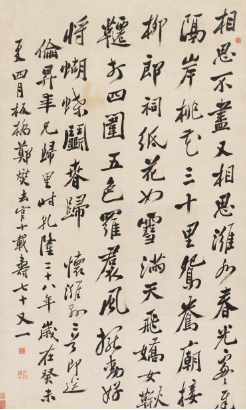 相思不盡又相思濰水春光處處遲
隔岸桃花三十里鴛鴦廟接
柳郎祠紙花如雪滿天飛嬌女鞦
韆打四圍五色羅裙風擺動好
將蝴蝶鬭春歸 懷濰縣二首即送
倫昇年兄歸里時乾隆二十八年歲在癸未
夏四月板橋鄭燮去官十載壽七十又一